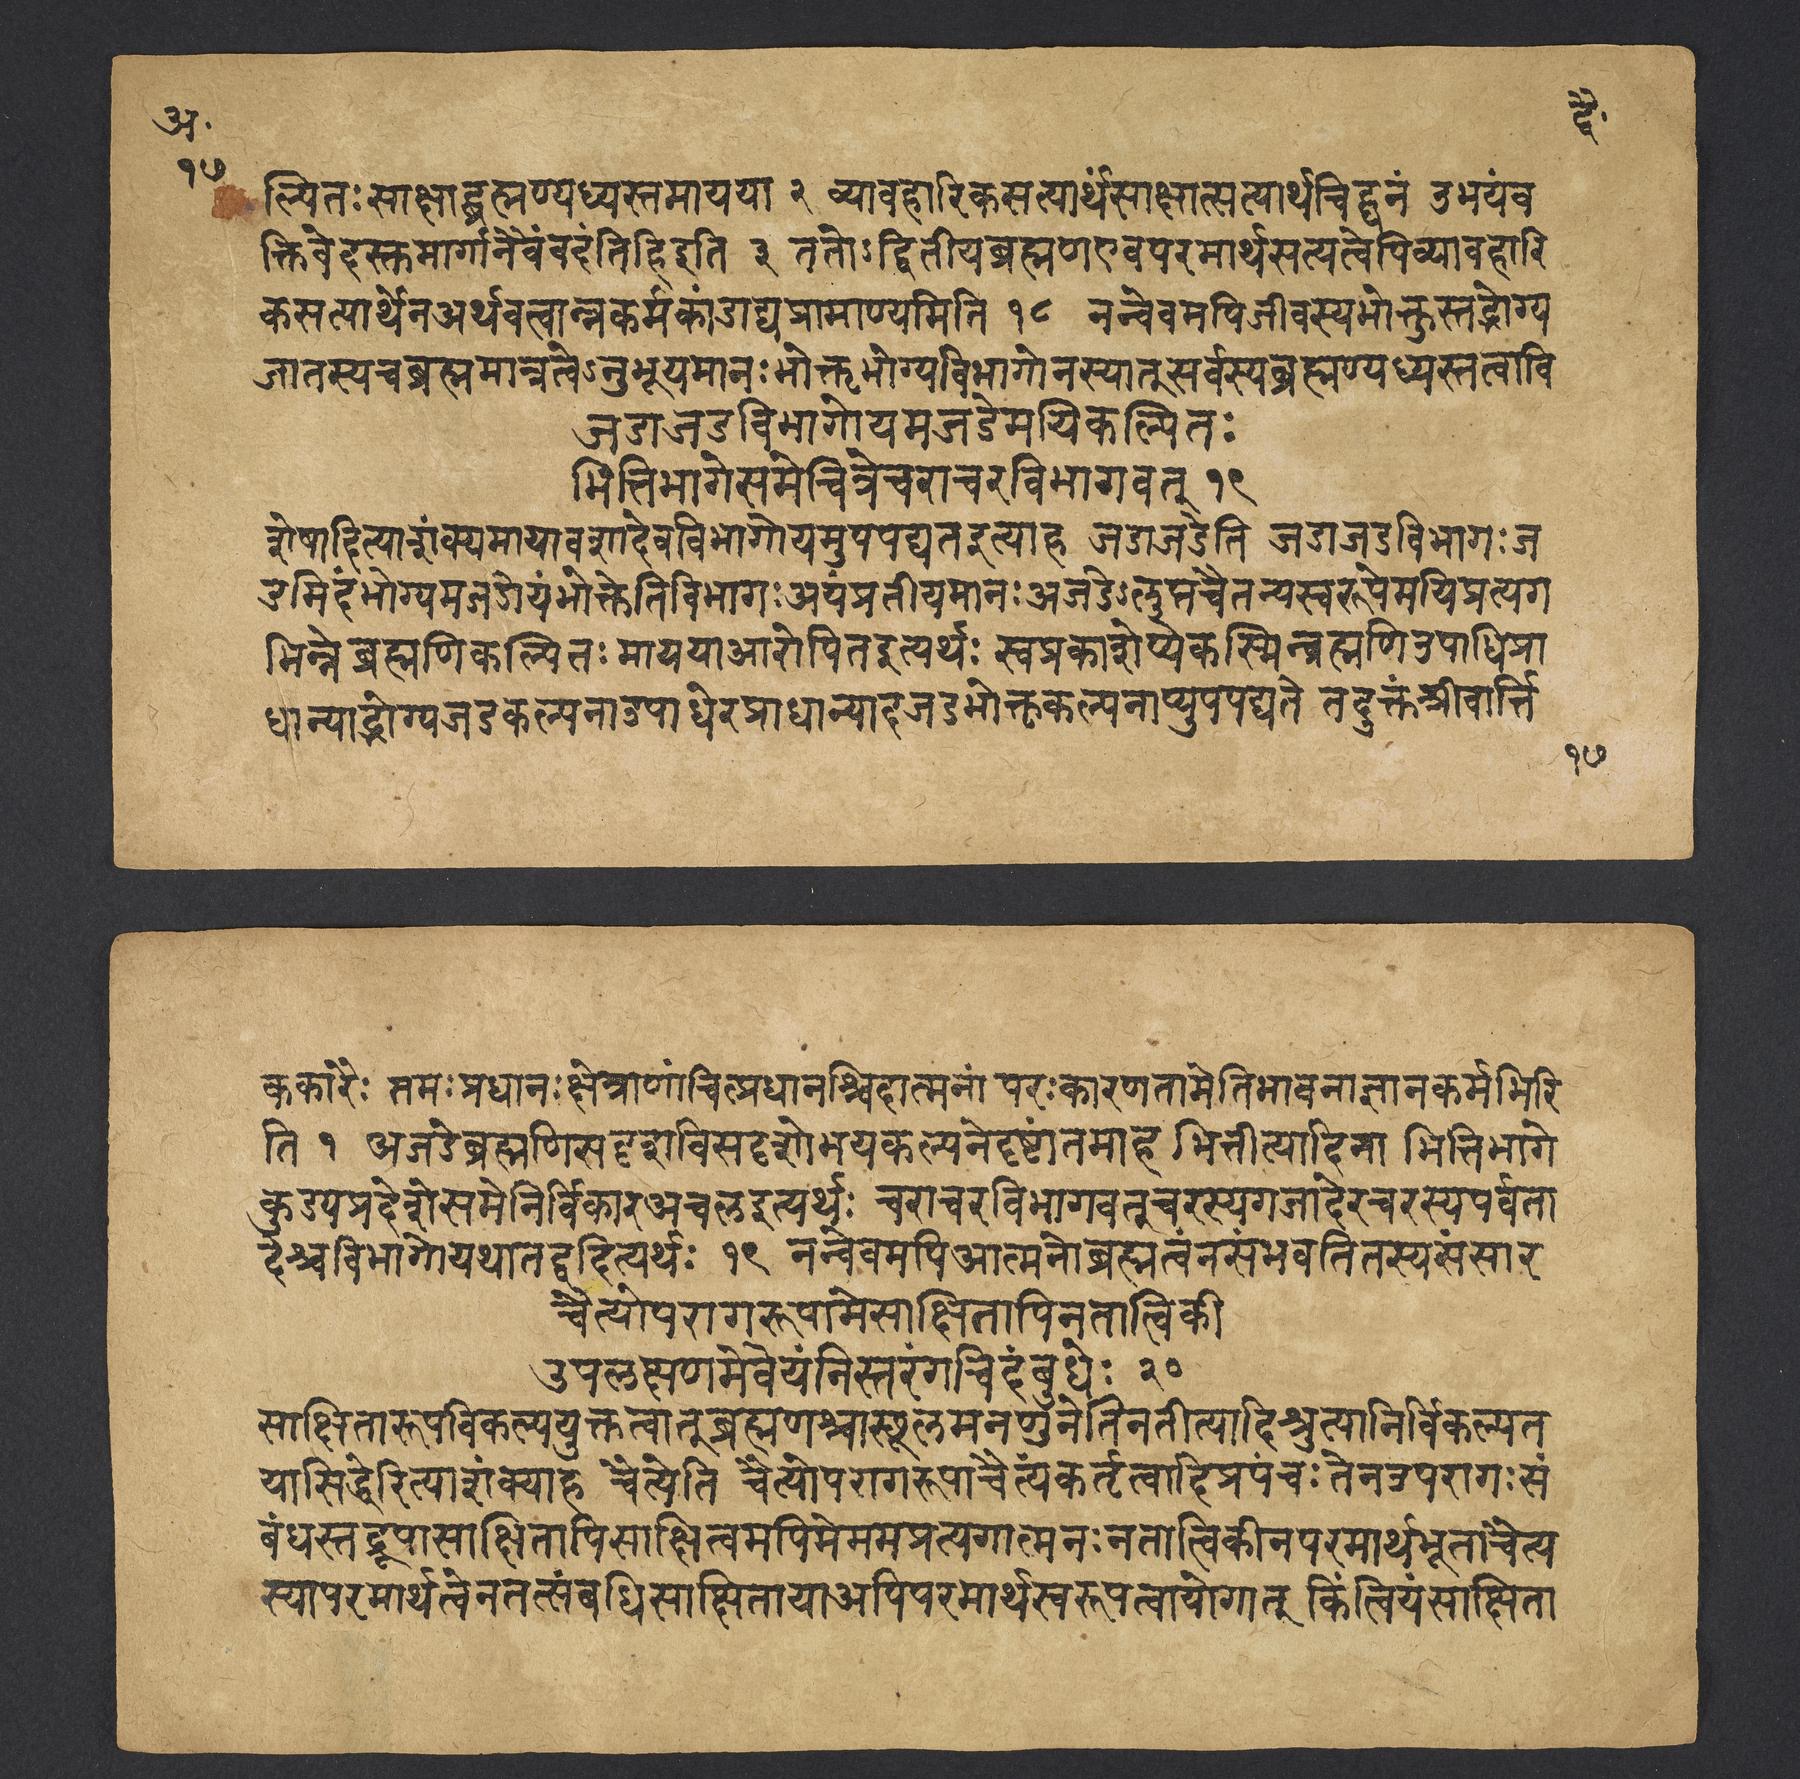 अ॰
द्वै॰
१७
ल्पितःसाक्षाद्ब्रह्मण्यध्यस्तमायया २ व्यावहारिकसत्यार्थंसाक्षात्सत्यार्थचिद्घनं उभयंव
क्तिवेदस्तमार्गानैवैवंवदंतिहिइति ३ ततोऽद्वितीयब्रह्मणएवपरमार्थसत्यत्वेपिव्यावहारि
कसत्यार्थेनअर्थवत्वान्नकर्मकांडाद्यप्रामाण्यमिति १८ नन्वेवमपिजीवस्यभोक्तुस्तद्भोग्य
जातस्यचब्रह्ममात्रत्वेऽनुभूयमानःभोक्तृभोग्यविभागोनस्यात्सर्वस्यब्रह्मण्यध्यस्तत्वावि
जडाजडविभागोयमजडेमयिकल्पितः
भित्तिभागेसमेचित्रेचराचरविभागवत् १९
शेषादित्याशंक्यमायावशादेवविभागोयमुपपद्यतइत्याह जडाजडेति जडाजडविभागःज
डमिदंभोग्यमजडोयंभोक्तेतिविभागःअयंप्रतीयमानःअजडेऽलुप्तचैतन्यस्वरूपेमयिप्रत्यग
भिन्नेब्रह्मणिकल्पितःमाययाआरोपितइत्यर्थः स्वप्रकाशेप्येकस्मिन्ब्रह्मणिउपाधिप्रा
धान्याद्भोग्यजडकल्पनाउपाधेरप्राधान्यादजडभोक्तृकल्पनाप्युपपद्यते तदुक्तंश्रीवार्त्ति
१७
ककारैः तमःप्रधानःक्षेत्राणांचित्प्रधानश्चिदात्मनां परःकारणतामेतिभावनाज्ञानकर्मभिरि
ति १ अजडेब्रह्मणिसदृशविसदृशोभयकल्पनेदृष्टांतमाह भित्तीत्यादिना भित्तिभागे
कुड्यप्रदेशेसमेनिर्विकारअचलइत्यर्थः चराचरविभागवत्चरस्यगजादेरचरस्यपर्वता
देश्चविभागोयथातद्वदित्यर्थः १९ नन्वेवमपिआत्मनोब्रह्मत्वंनसंभवतितस्यसंसार
चैत्योपरागरूपामेसाक्षितापिनतात्विकी
उपलक्षणमेवेयंनिस्तरंगचिदंबुधेः २०
साक्षितारूपविकल्पयुक्तत्वात्ब्रह्मणश्चास्थूलमनणुनेतिनेतीत्यादिश्रुत्यानिर्विकल्पत
यासिद्धेरित्याशंक्याह चैत्येति चैत्योपरागरूपाचैत्यंकर्तृत्वादिप्रपंचःतेनउपरागःसं
बंधस्तद्रूपासाक्षितापिसाक्षित्वमपिमेममप्रत्यगात्मनःनतात्विकीनपरमार्थभूताचैत्य
स्यापरमार्थत्वेनतत्संबधिसाक्षितायाअपिपरमार्थस्वरूपत्वायोगात् किंत्वियंसाक्षिता